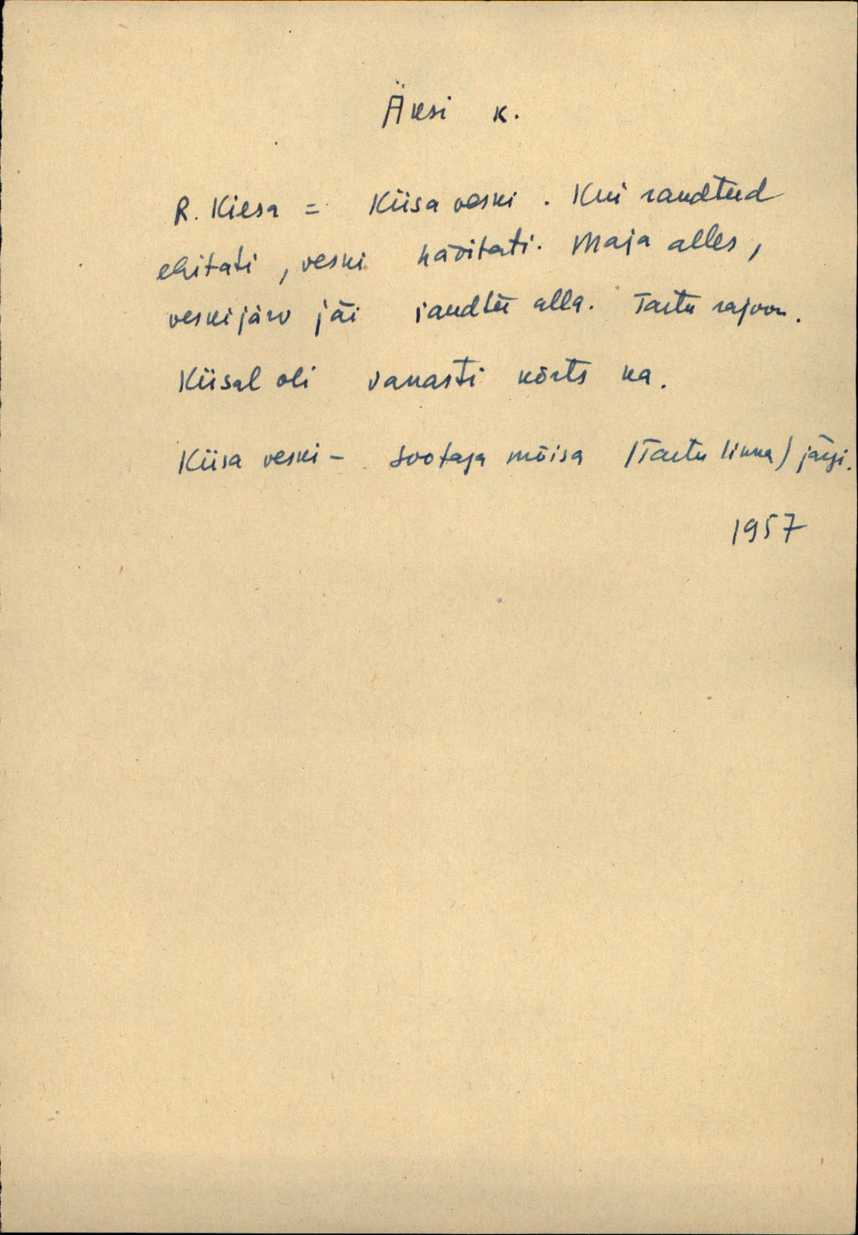 Äksi k.
R. Kiesa = Kiisa veski. Kui raudteed
ehitati, veski hävitati. Maja alles,
veskijärv jäi raudtee alla. Tartu rajoon.
Kiisal oli vanasti kõrts ka.
Kiisa veski - Sootaga mõisa (Tartu linna) järgi.
1957